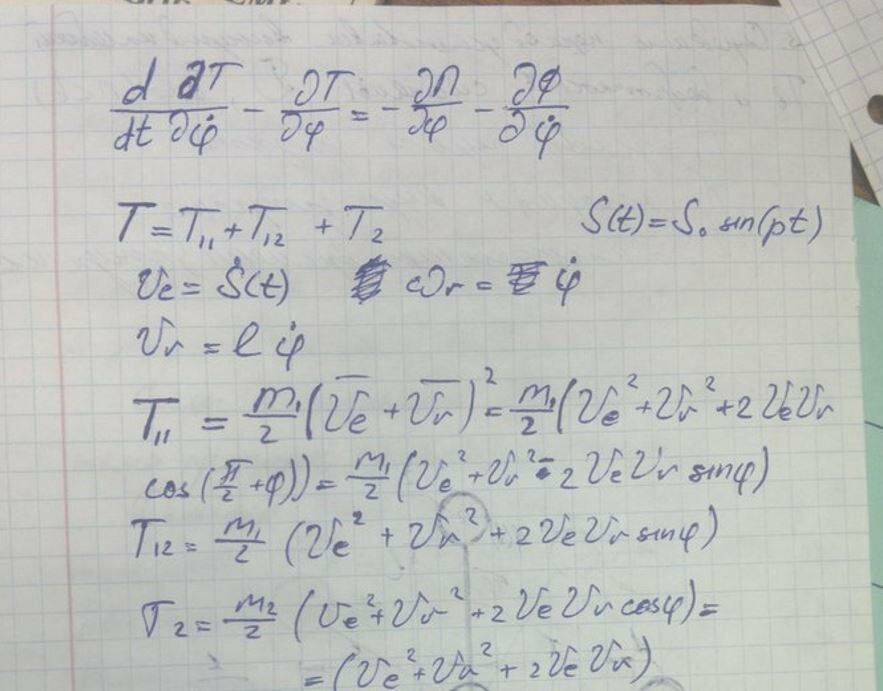 d/dt ∂T/∂φ̇ - ∂T/∂φ = - ∂Π/∂φ - ∂Φ/∂φ̇
T = T₁₁ + T₁₂ + T₂ S(t) = S₀ sin(pt)
Ve = Ṡ(t) ωr = φ̇
Vr = l φ̇
T₁₁ = m₁/2 (V̅e + V̅r)² = m₁/2 (Ve² + Vr² + 2 Ve Vr
cos(π/2 + φ)) = m₁/2 (Ve² + Vr² - 2 Ve Vr sinφ)
T₁₂ = m₁/2 (Ve² + Vr² + 2 Ve Vr sinφ)
T₂ = m₂/2 (Ve² + Vr² + 2 Ve Vr cosφ) =
= (Ve² + Vr² + 2 Ve Vr)